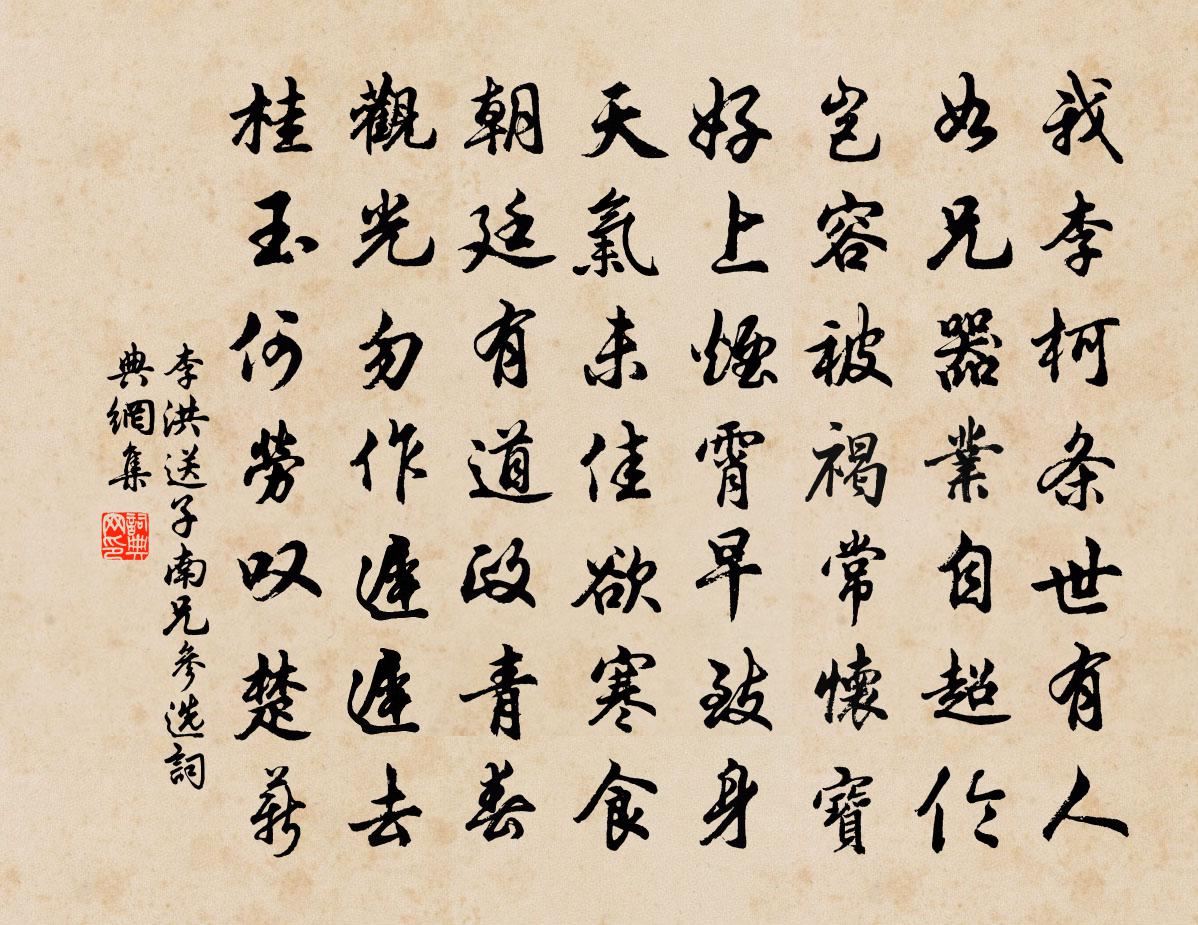 我李柯条世有人
如兄器業自超伦
岂容被褐常懷寶
好上煙霄早致身
天氣未佳欲寒食
朝廷有道政青春
觀光勿作遲遲去
桂玉何勞叹楚薪
李洪送子南兄參选詞
典網集
詞典网印